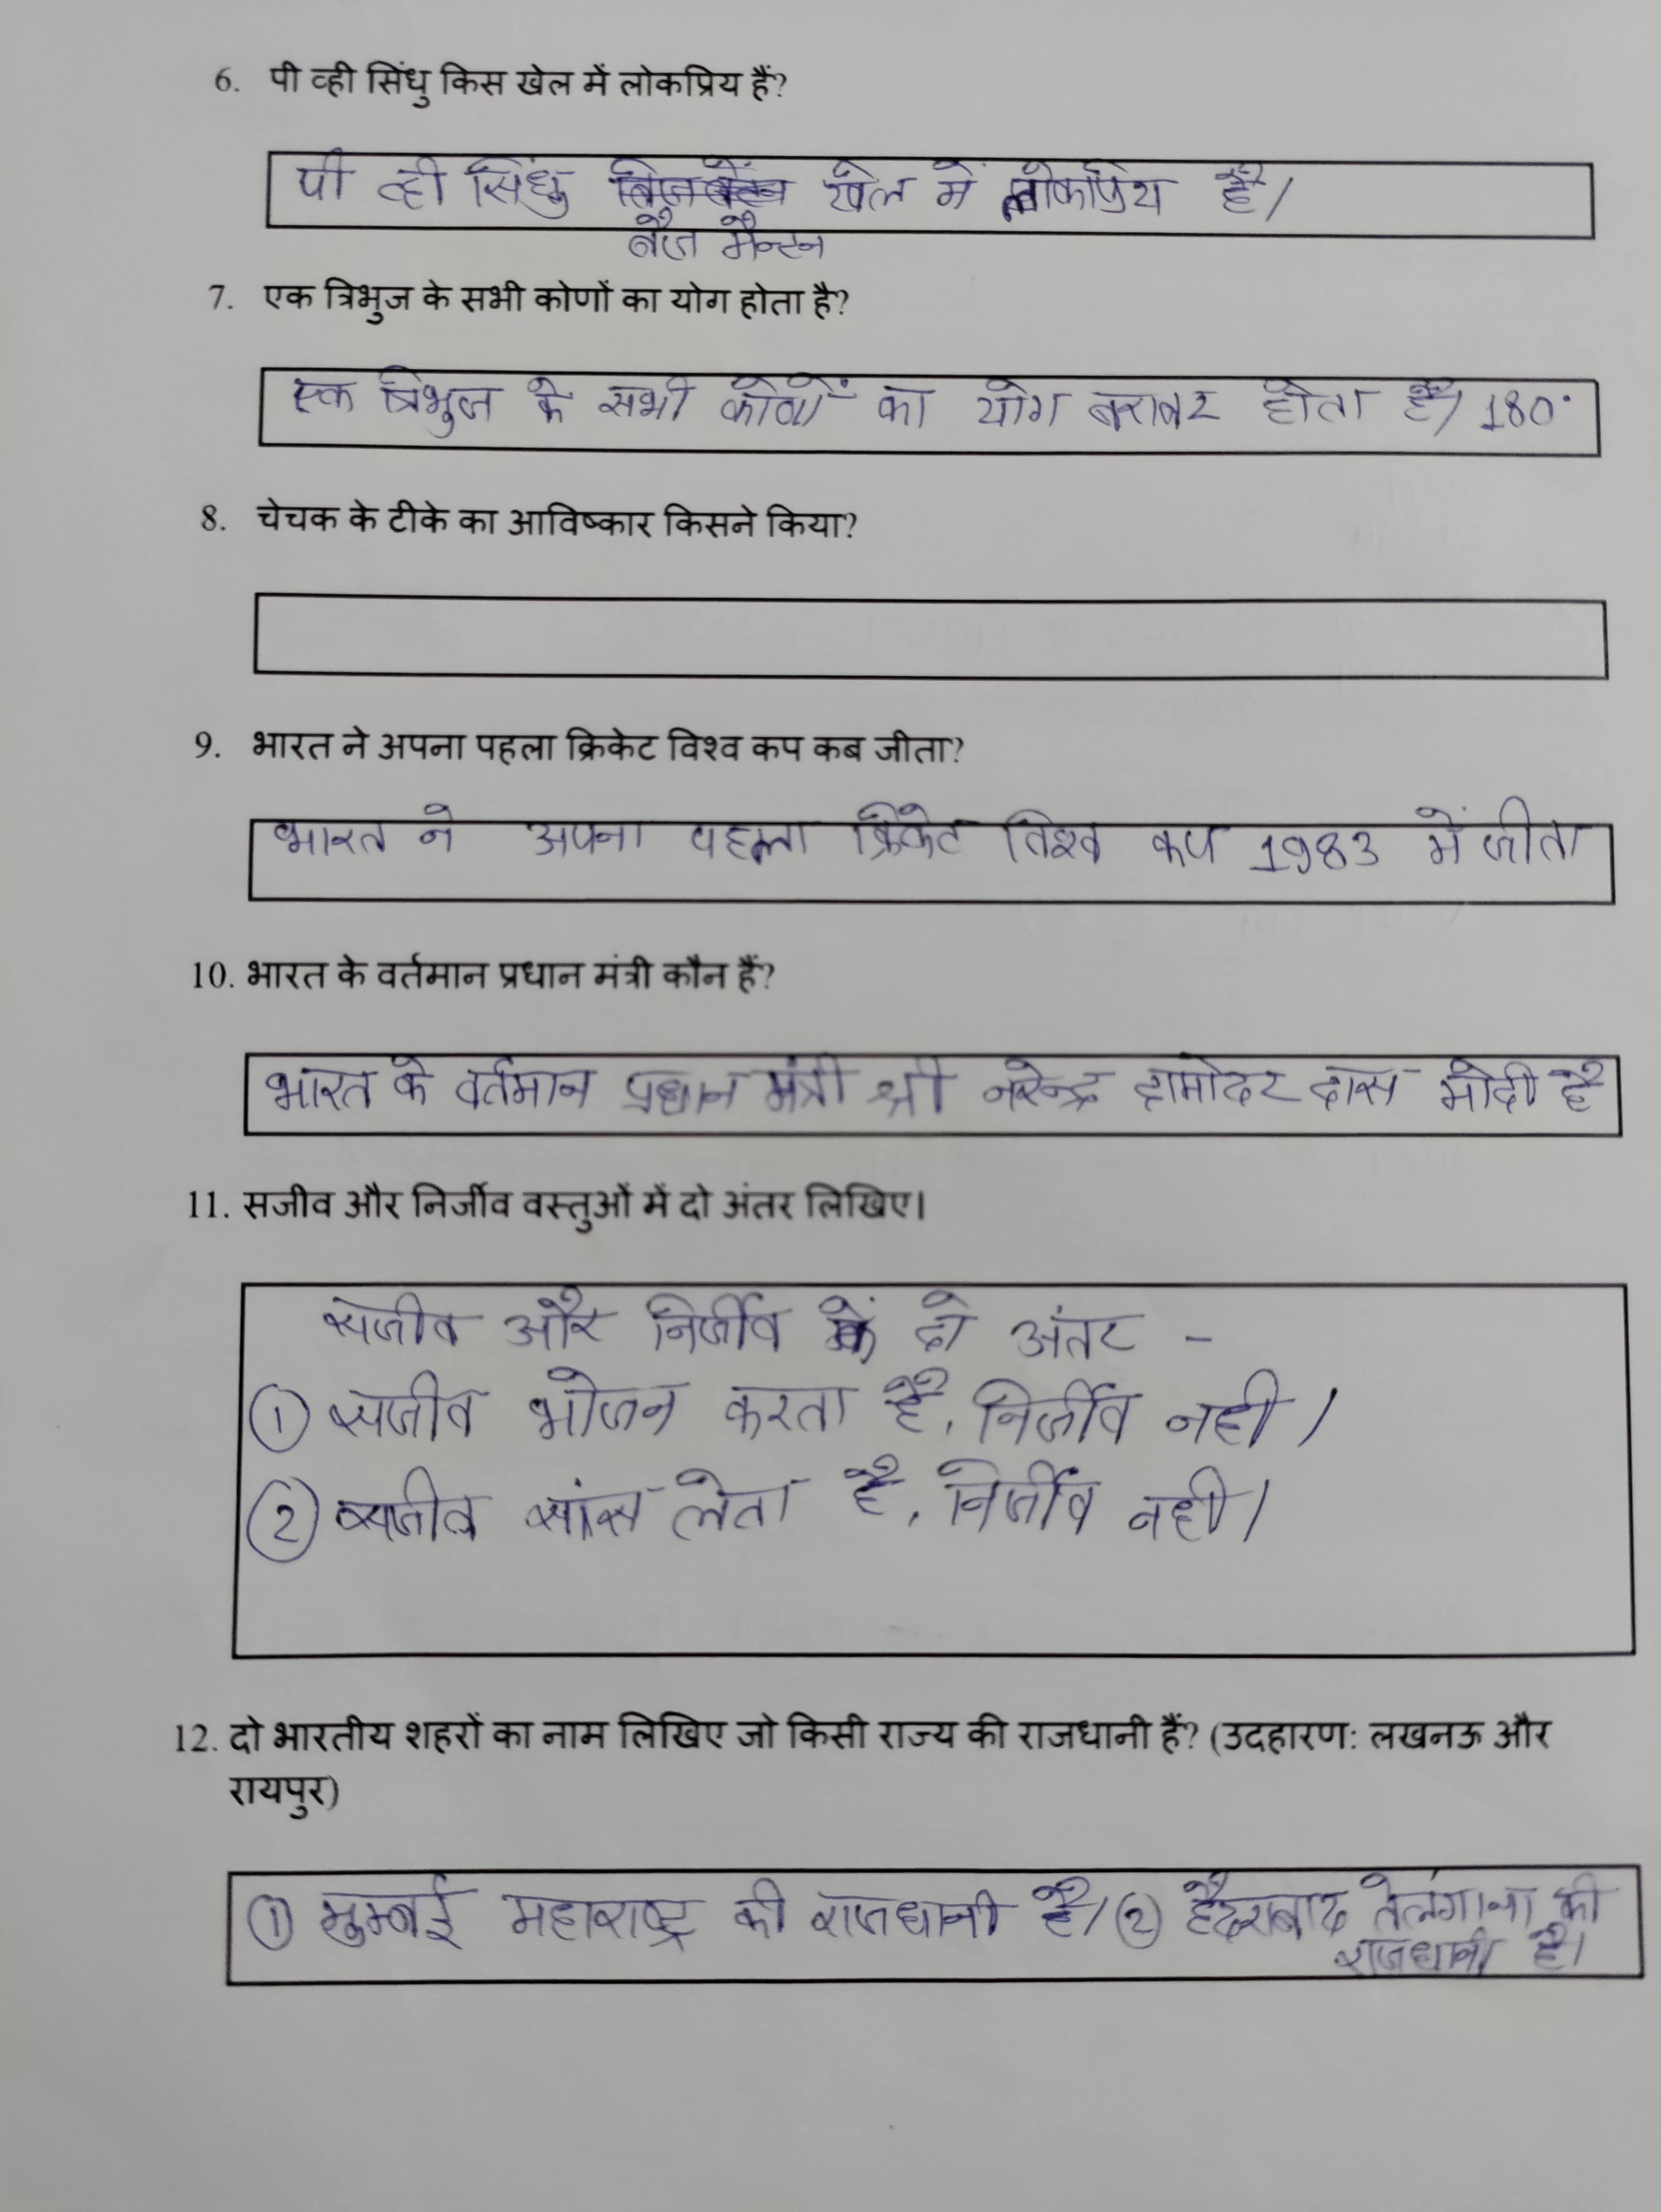 6. पी व्ही सिंधु किस खेल में लोकप्रिय हैं?
पी व्ही सिंधु खेल में लोकप्रिय है।
बैज मैन्टन
7. एक त्रिभुज के सभी कोणों का योग होता है?
एक त्रिभुज के सभी कोणों का योग बराबर होता है। 180°
8. चेचक के टीके का आविष्कार किसने किया?
9. भारत ने अपना पहला क्रिकेट विश्व कप कब जीता?
भारत ने अपना पहला क्रिकेट विश्व कप 1983 में जीता
10. भारत के वर्तमान प्रधान मंत्री कौन हैं?
भारत के वर्तमान प्रधान मंत्री श्री नरेन्द्र दामोदर दास मोदी है
11. सजीव और निर्जीव वस्तुओं में दो अंतर लिखिए।
सजीव और निर्जीव में दो अंतर -
① सजीव भोजन करता है, निर्जीव नही।
② सजीव सांस लेता है, निर्जीव नही।
12. दो भारतीय शहरों का नाम लिखिए जो किसी राज्य की राजधानी हैं? (उदहारण: लखनऊ और
रायपुर)
① मुम्बई महाराष्ट्र की राजधानी है। ② हैदराबाद तेलंगाना की
राजधानी है।